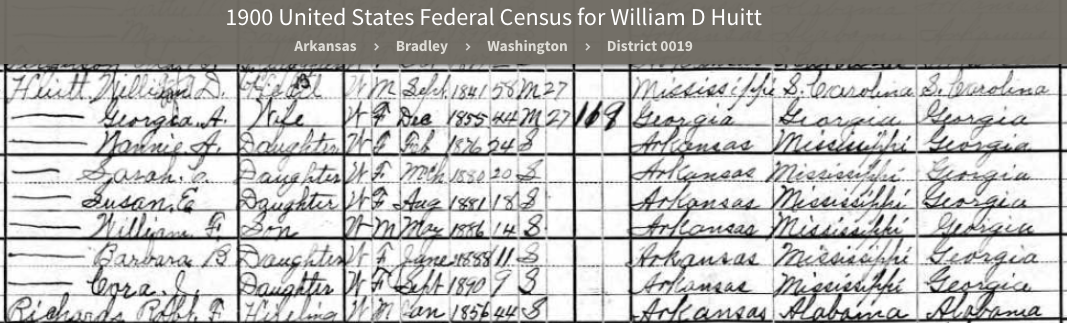 1900 United States Federal Census for William D Huitt
Arkansas › Bradley › Washington › District 0019
Huitt William D. Head W M Sept 1841 58 M 27 Mississippi S. Carolina S. Carolina
Georgia A. Wife W F Dec 1855 44 M 27 Georgia Georgia Georgia
Nannie A. Daughter W F Feb 1876 24 S Arkansas Mississippi Georgia
Sarah Daughter W F Mch 1880 20 S Arkansas Mississippi Georgia
Susan E Daughter W F Aug 1881 18 S Arkansas Mississippi Georgia
William F Son W M May 1886 14 S Arkansas Mississippi Georgia
Barbara B Daughter W F June 1888 11 S Arkansas Mississippi Georgia
Cora J. Daughter W F Sept 1890 9 S Arkansas Mississippi Georgia
Richards Ralph F W M Jan 1856 44 S Arkansas Alabama Alabama